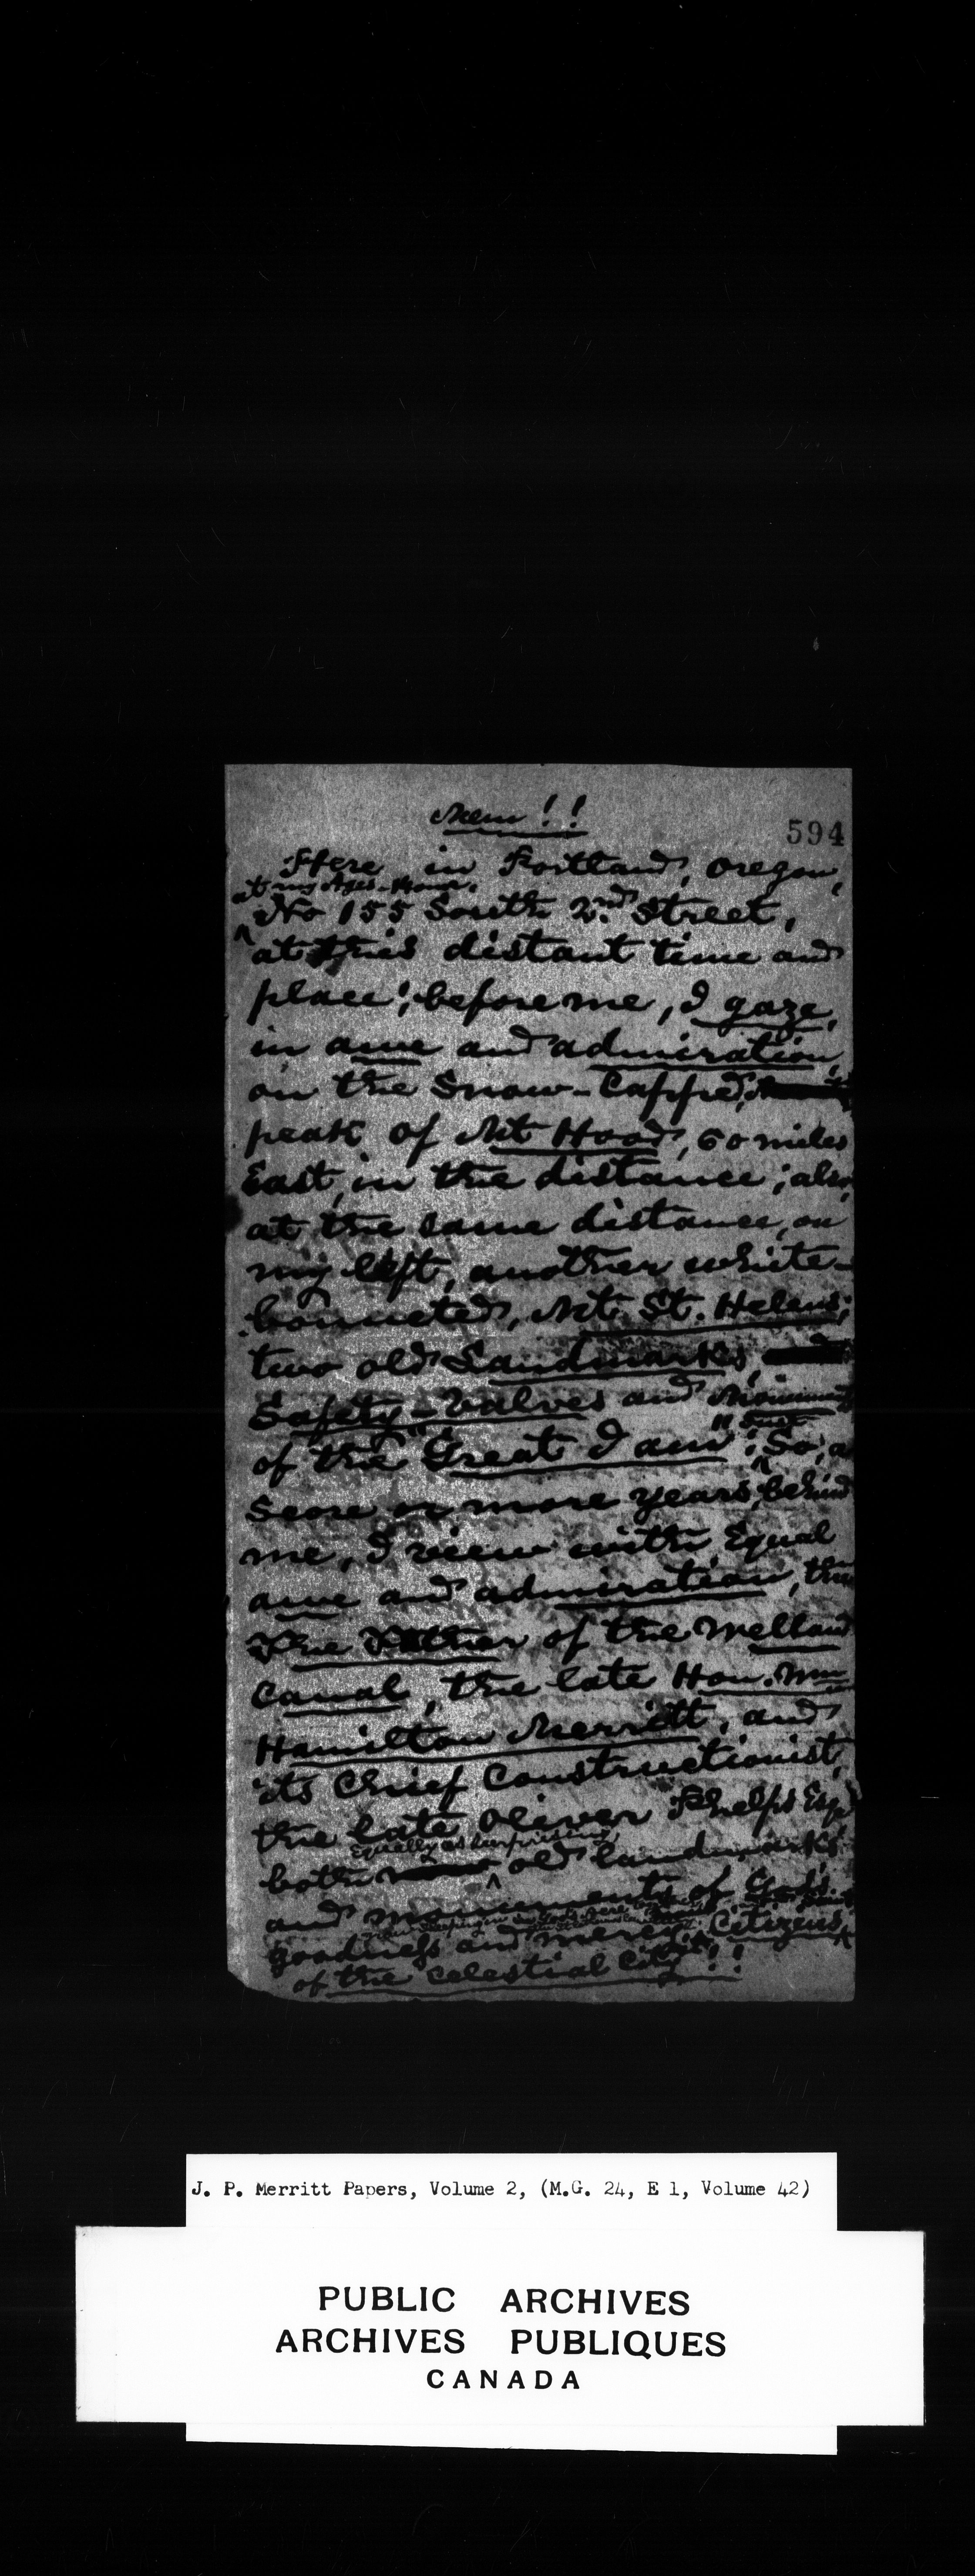 Mem!!
594
Here in Portland, Oregon,
at my Ages-Home,
No 155 South 2nd Street,
at this distant time and
place; before me, I gaze,
in awe and admiration,
on the Snow-Capped,
peak of Mt Hood, 60 miles
East, in the distance; also,
at the same distance, on
my left, another white-
bonneted, Mt. St. Helens;
two old Landmarks,
Safety-Valves and
of the "Great I am"; So, a
Score or more years, behind
me, I view with Equal
awe and admiration, the
The Father of the Welland
Canal, the late Hon. Wm
Hamilton Merritt, and
its Chief Constructionist,
the late Oliver Phelps Esqr
Equally as surprising
both old landmarks
and monuments of God's
goodness and mercy Citizens
of the Celestial City!!
J. P. Merritt Papers, Volume 2, (M.G. 24, E 1, Volume 42)
PUBLIC ARCHIVES
ARCHIVES PUBLIQUES
CANADA